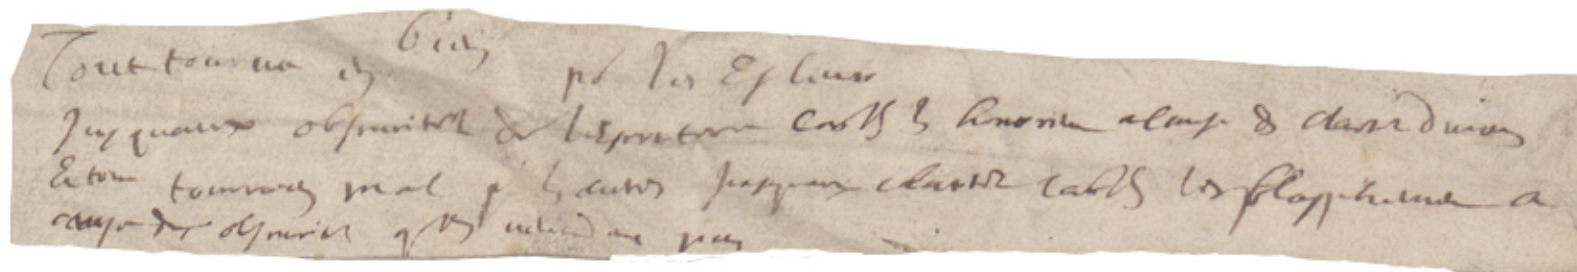 Tout tourne en bien pr les Esleus
Jusquaux obscuritez de lescriture car ils les honorent a cause des clartez divines
Et tout tourne en mal pr les autres jusquaux clartez car ils les blasphement a
cause des obscuritez qls nentendent pas